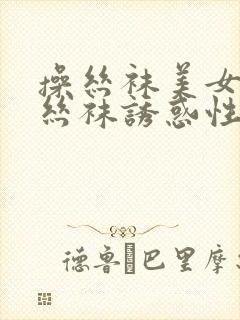 操丝袜美女
丝袜誘惑性
德鲁巴里摩